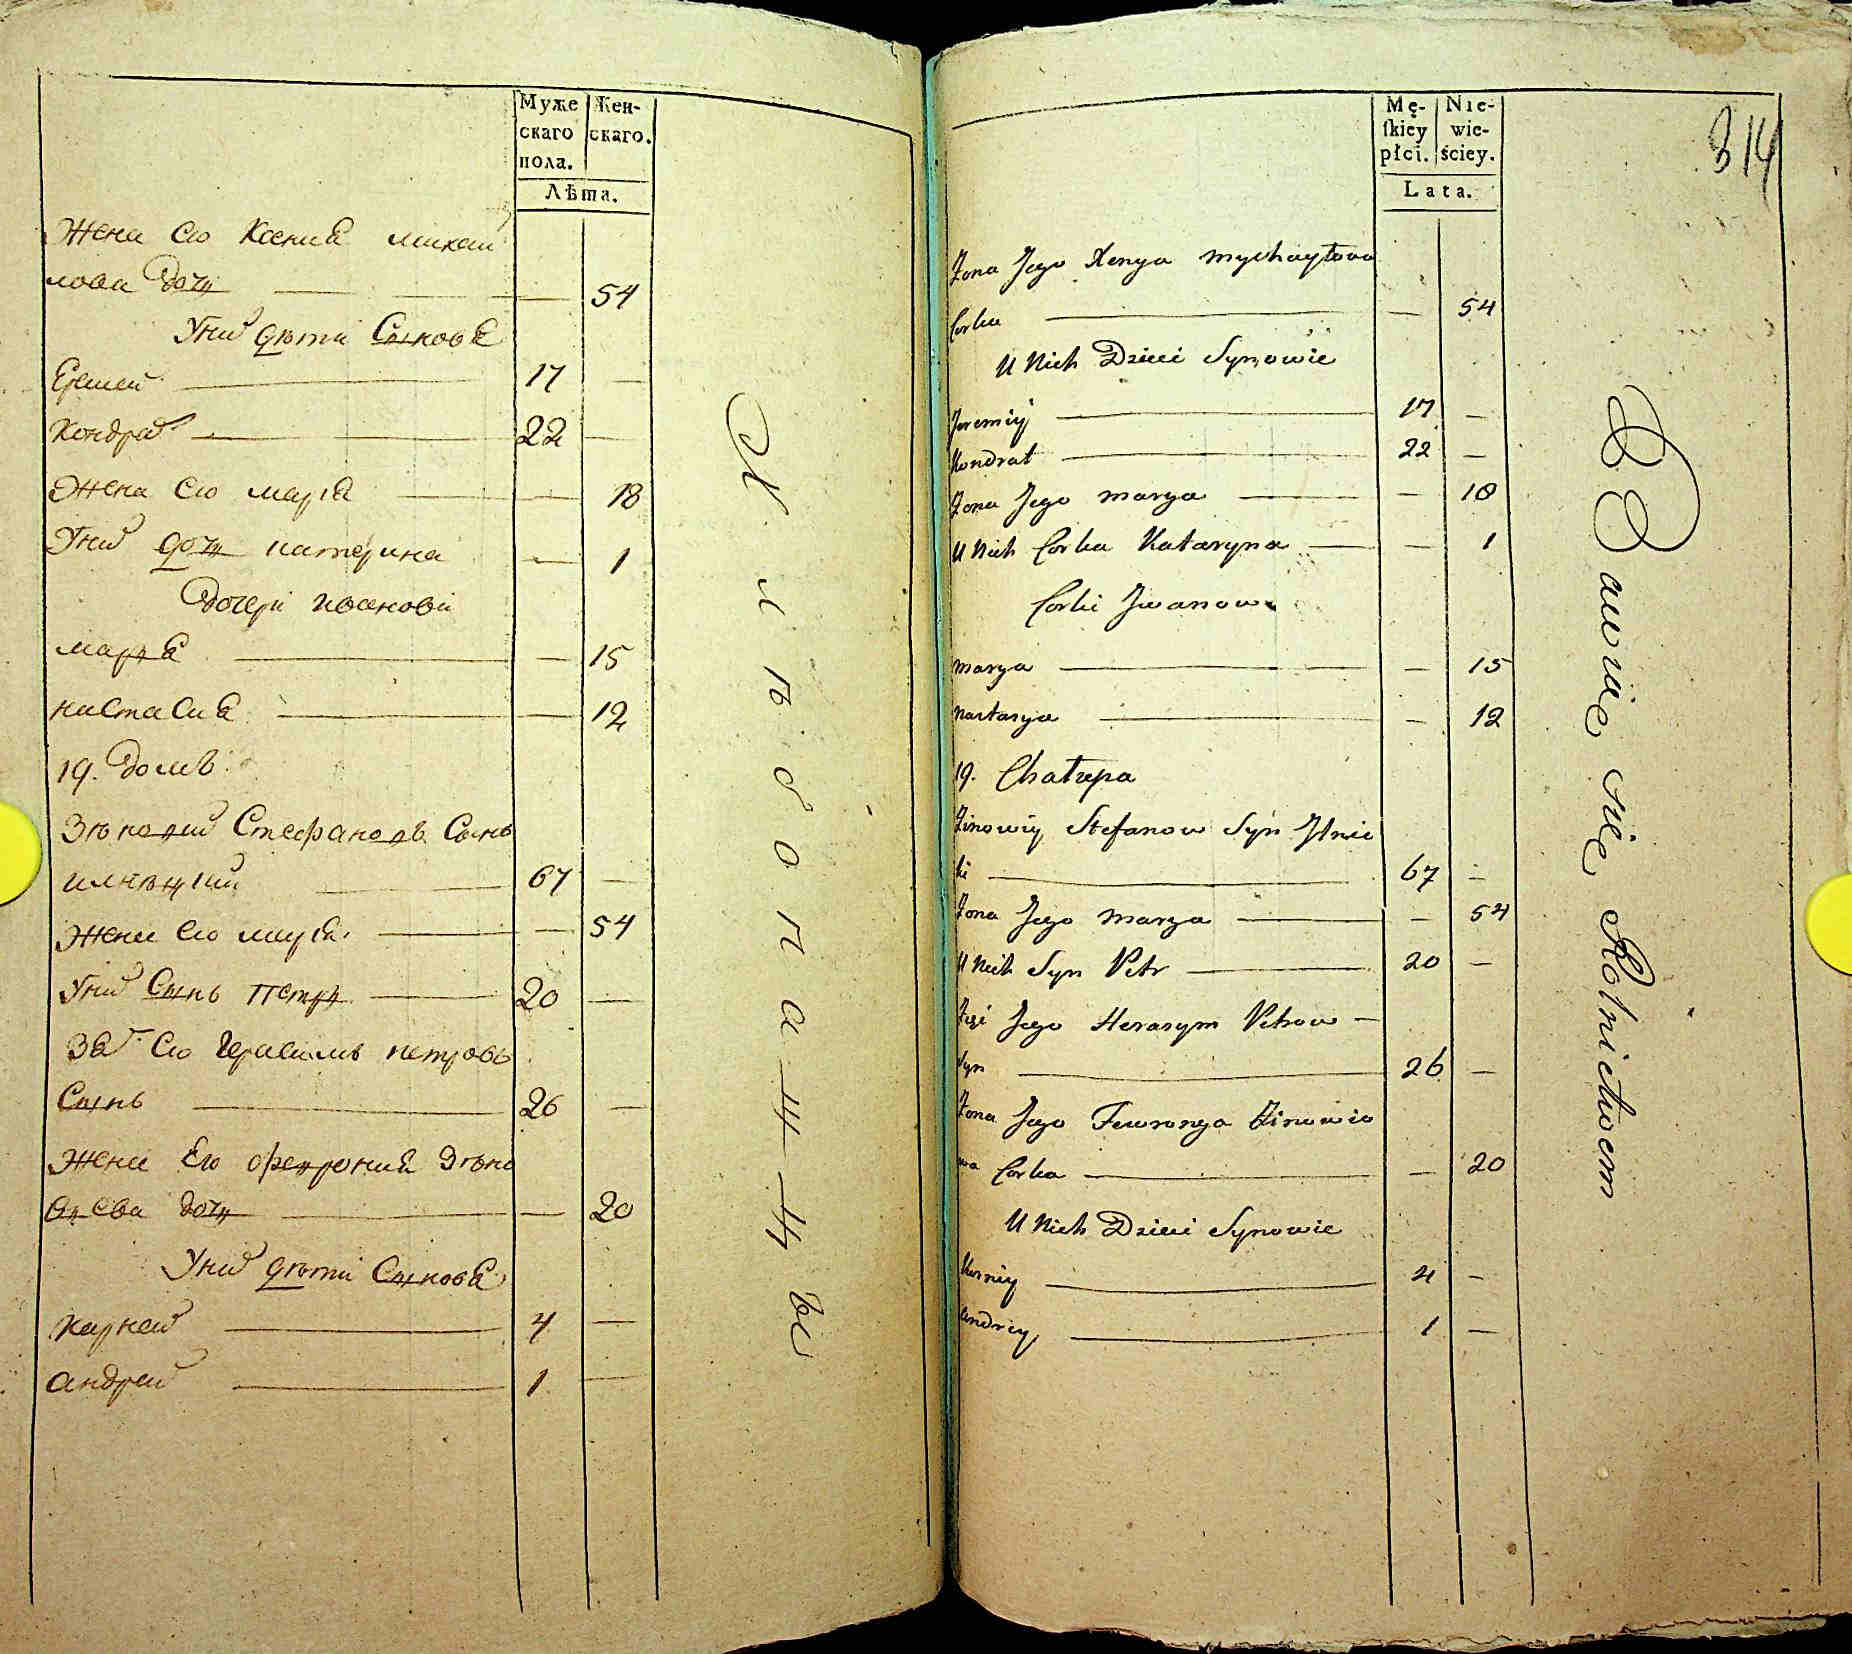 Муже
скаго
пола.
Жен-
скаго.
Лѣта.
Жена єго Ксения михай
лова дочь — — 54
Уних дѣти Сынове
Еремей — 17 —
Кондрат — 22 —
Жена єго мария — — 18
Уних дочь катерина — 1
Дочери иванови
мария — — 15
настасия — — 12
19. Домъ
Стефановъ Сынъ
67 —
Жена єго мария — — 54
Уних Сынъ Петръ — 20 —
Зят єго Герасимъ петровъ
Сынъ — 26 —
Жена Его феврония Зѣно
виева дочь — — 20
Уних дѣти Сынове
Карней — 4 —
андрей — 1 —
Хлѣбопашцы
314
Mę-
skiey
płci.
Nie-
wie-
ściey.
Lata.
Żona Jego Xenya Mychayłowa
Corka — — 54
U Nich Dzieci Synowie
Jeremiy — 17 —
Kondrat — 22 —
Żona Jego Marya — — 18
U Nich Corka Kataryna — — 1
Corki Jwanow
Marya — — 15
Nastasya — — 12
19. Chatupa
Zinowiy Stefanow Syn Jlnic
ki — 67 —
Żona Jego Marya — — 54
U Nich Syn Petr — 20 —
Zięć Jego Herasym Petrow —
Syn — 26 —
Żona Jego Fewronya Zinowio
wa Corka — — 20
U Nich Dzieci Synowie
Korniy — 4 —
Andrey — 1 —
Bawie się Rolnictwem